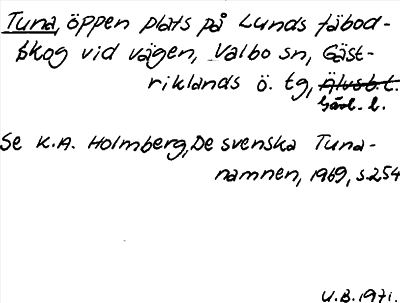 Tuna, öppen plats på Lunds fäbod-
skog vid vägen, Valbo sn, Gäst-
riklands ö. tg, Älvsb.l.
Gävl. l.
Se K.A. Holmberg, De svenska Tuna-
namnen, 1969, s.254
U.B.1971.